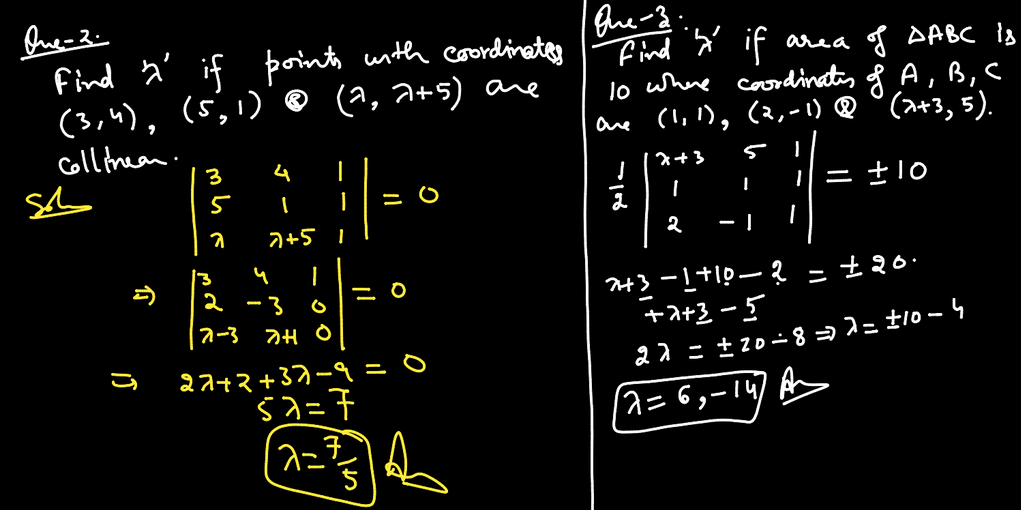 Que-2.
Find 'λ' if points with coordinates
(3,4), (5,1) & (λ, λ+5) are
collinear.
Soln
| 3 4 1 |
| 5 1 1 | = 0
| λ λ+5 1 |
| 3 4 1 |
⇒ | 2 -3 0 | = 0
| λ-3 λ+1 0 |
⇒ 2λ+2+3λ-9 = 0
5λ = 7
λ = 7/5 Ans
Que-3.
Find 'λ' if area of ΔABC is
10 where coordinates of A, B, C
are (1,1), (2,-1) & (λ+3, 5).
| λ+3 5 1 |
1/2 | 1 1 1 | = ±10
| 2 -1 1 |
λ+3-1+10-2 = ±20.
+λ+3-5
2λ = ±20-8 ⇒ λ = ±10-4
λ = 6, -14 Ans